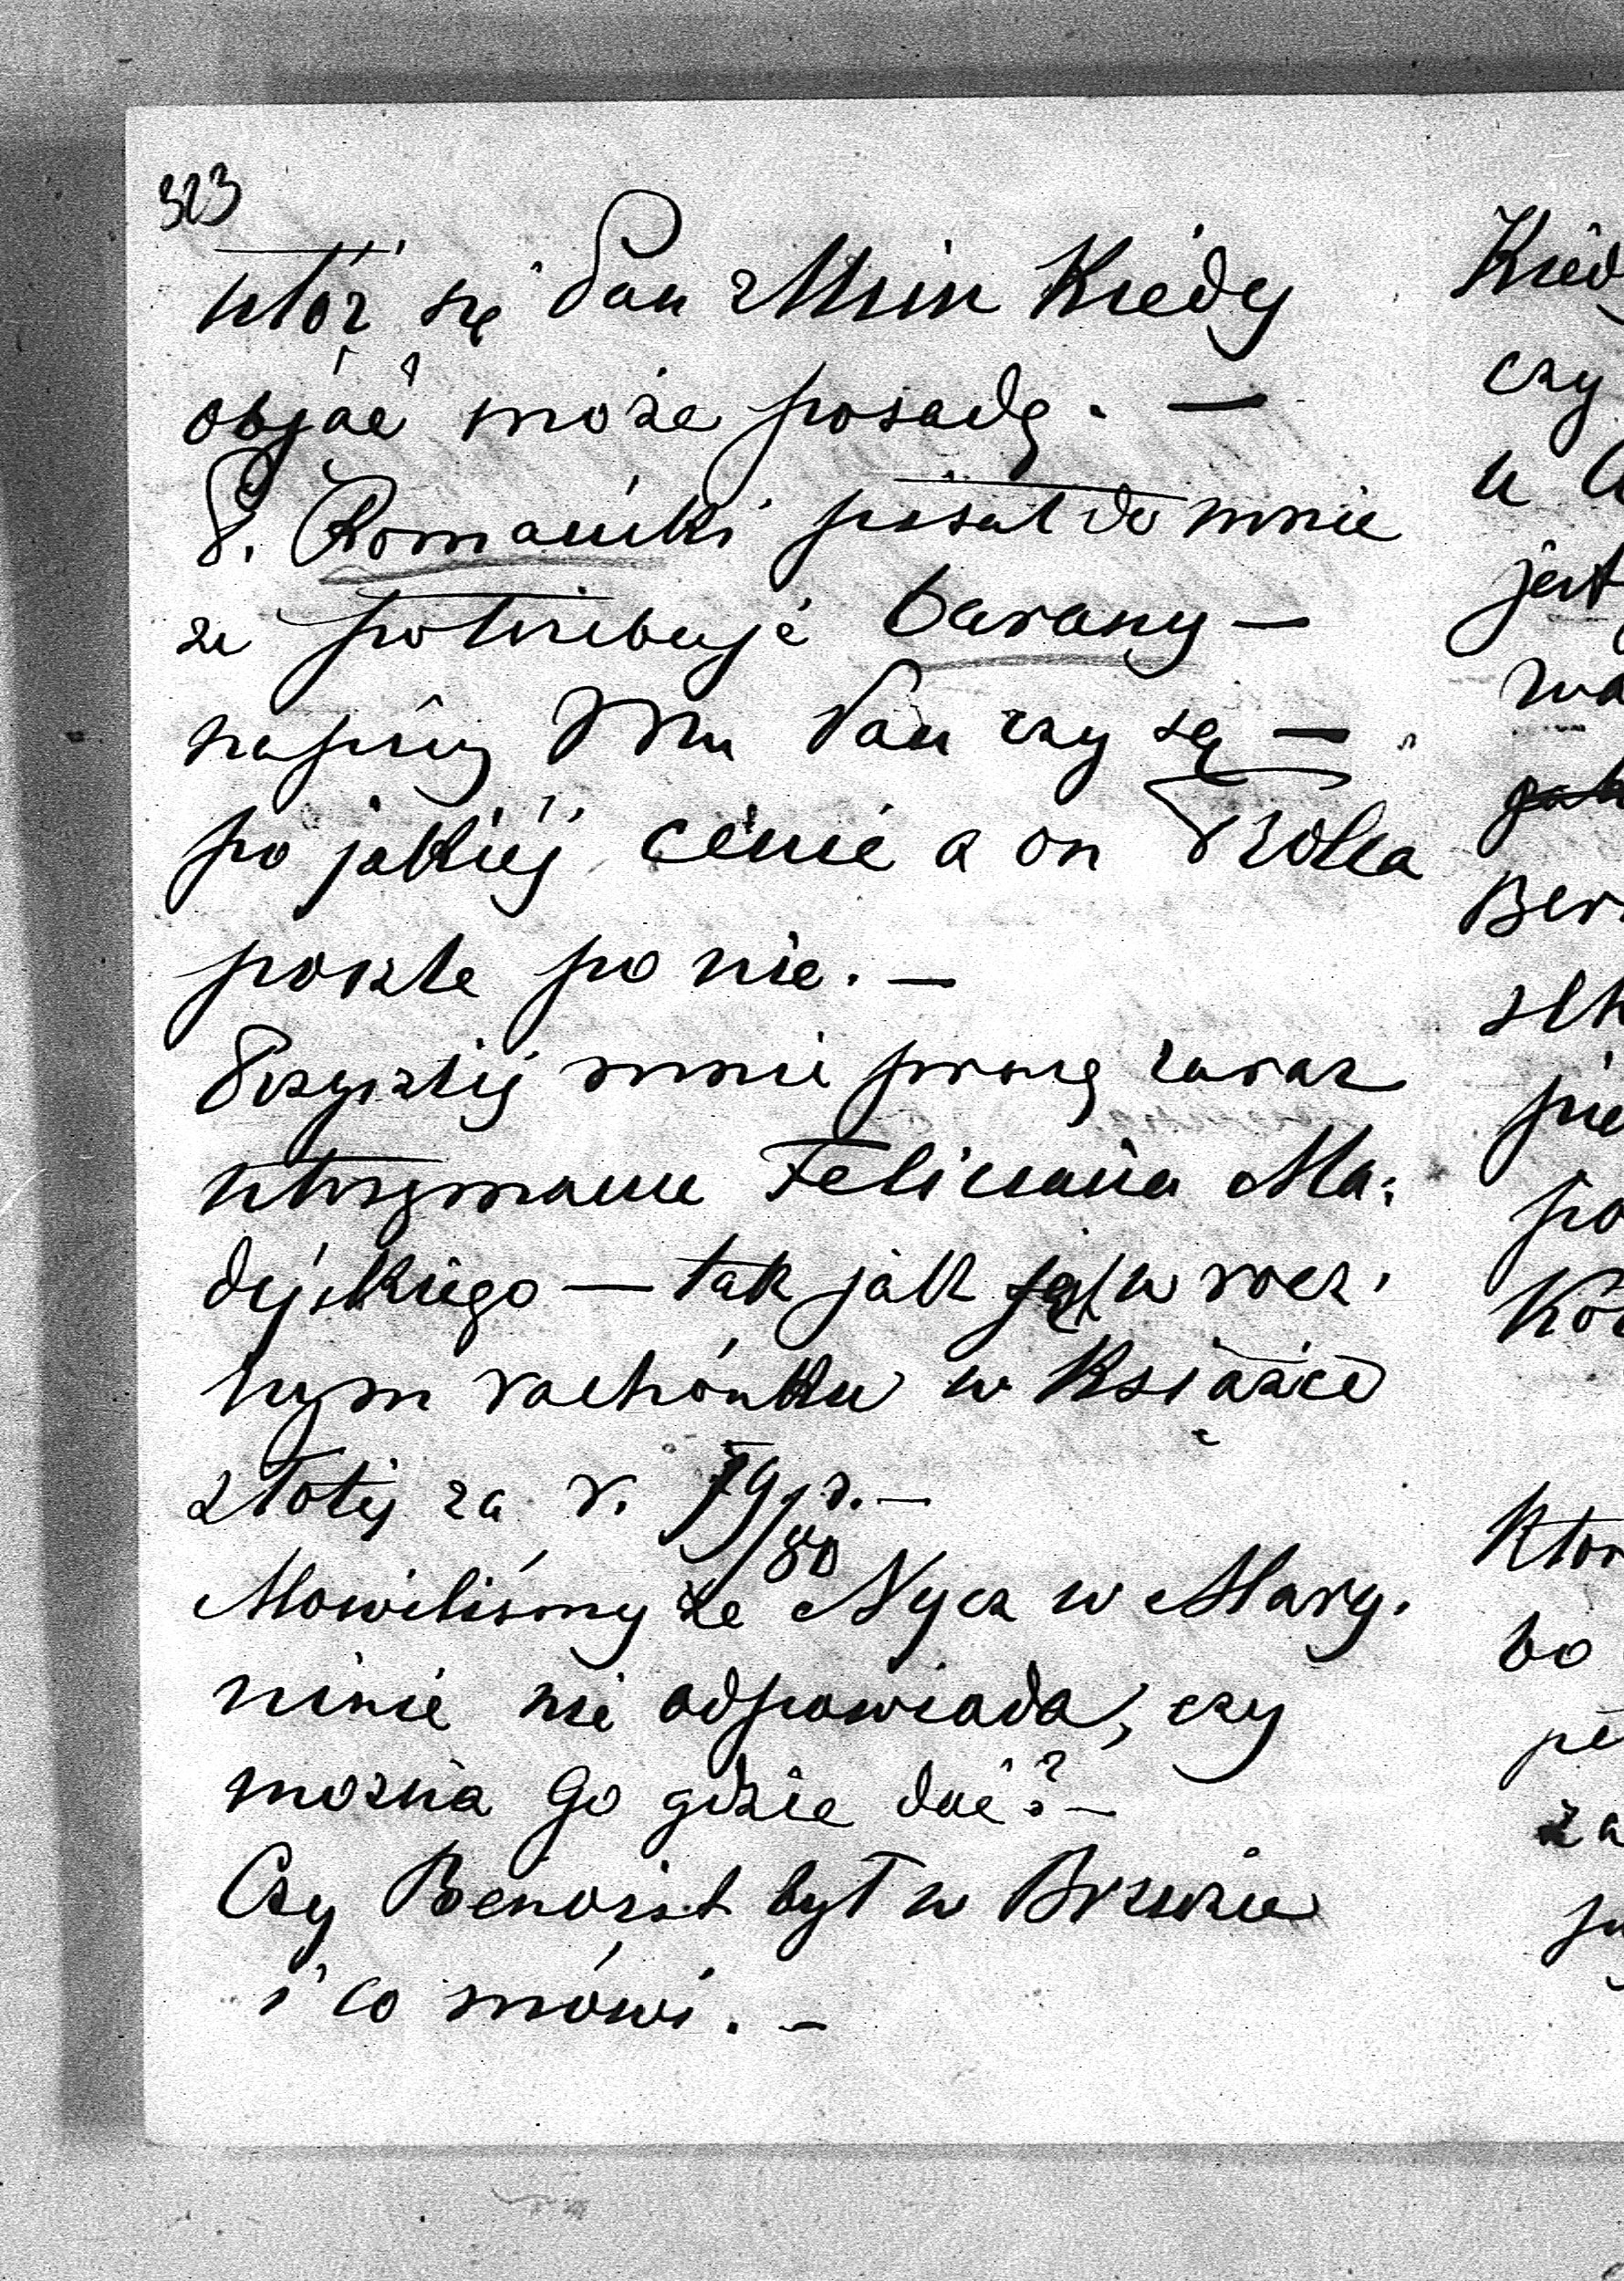 323
utóż się Pan z Nim Kiedy
objąć może posadę. —
P. Romański pisał do mnie
że potrzebuje barany —
napisz Mu Pan czy są —
po jakiej cenie a on
poszle po nie. —
Przyszlij mnie proszę zaraz
utrzymanie Feliciana Ma-
dejskiego — tak jak w rocz-
nym rachónku w Książce
złotej za r. 79/80
Mowiliśmy że Nycz w Mary-
ninie nie odpowiada, czy
można go gdzie dać? —
Czy Benoist był w
i co mówi. —
Kied
czy
u
jest
Ber
pie
po
Ktor
bo
za